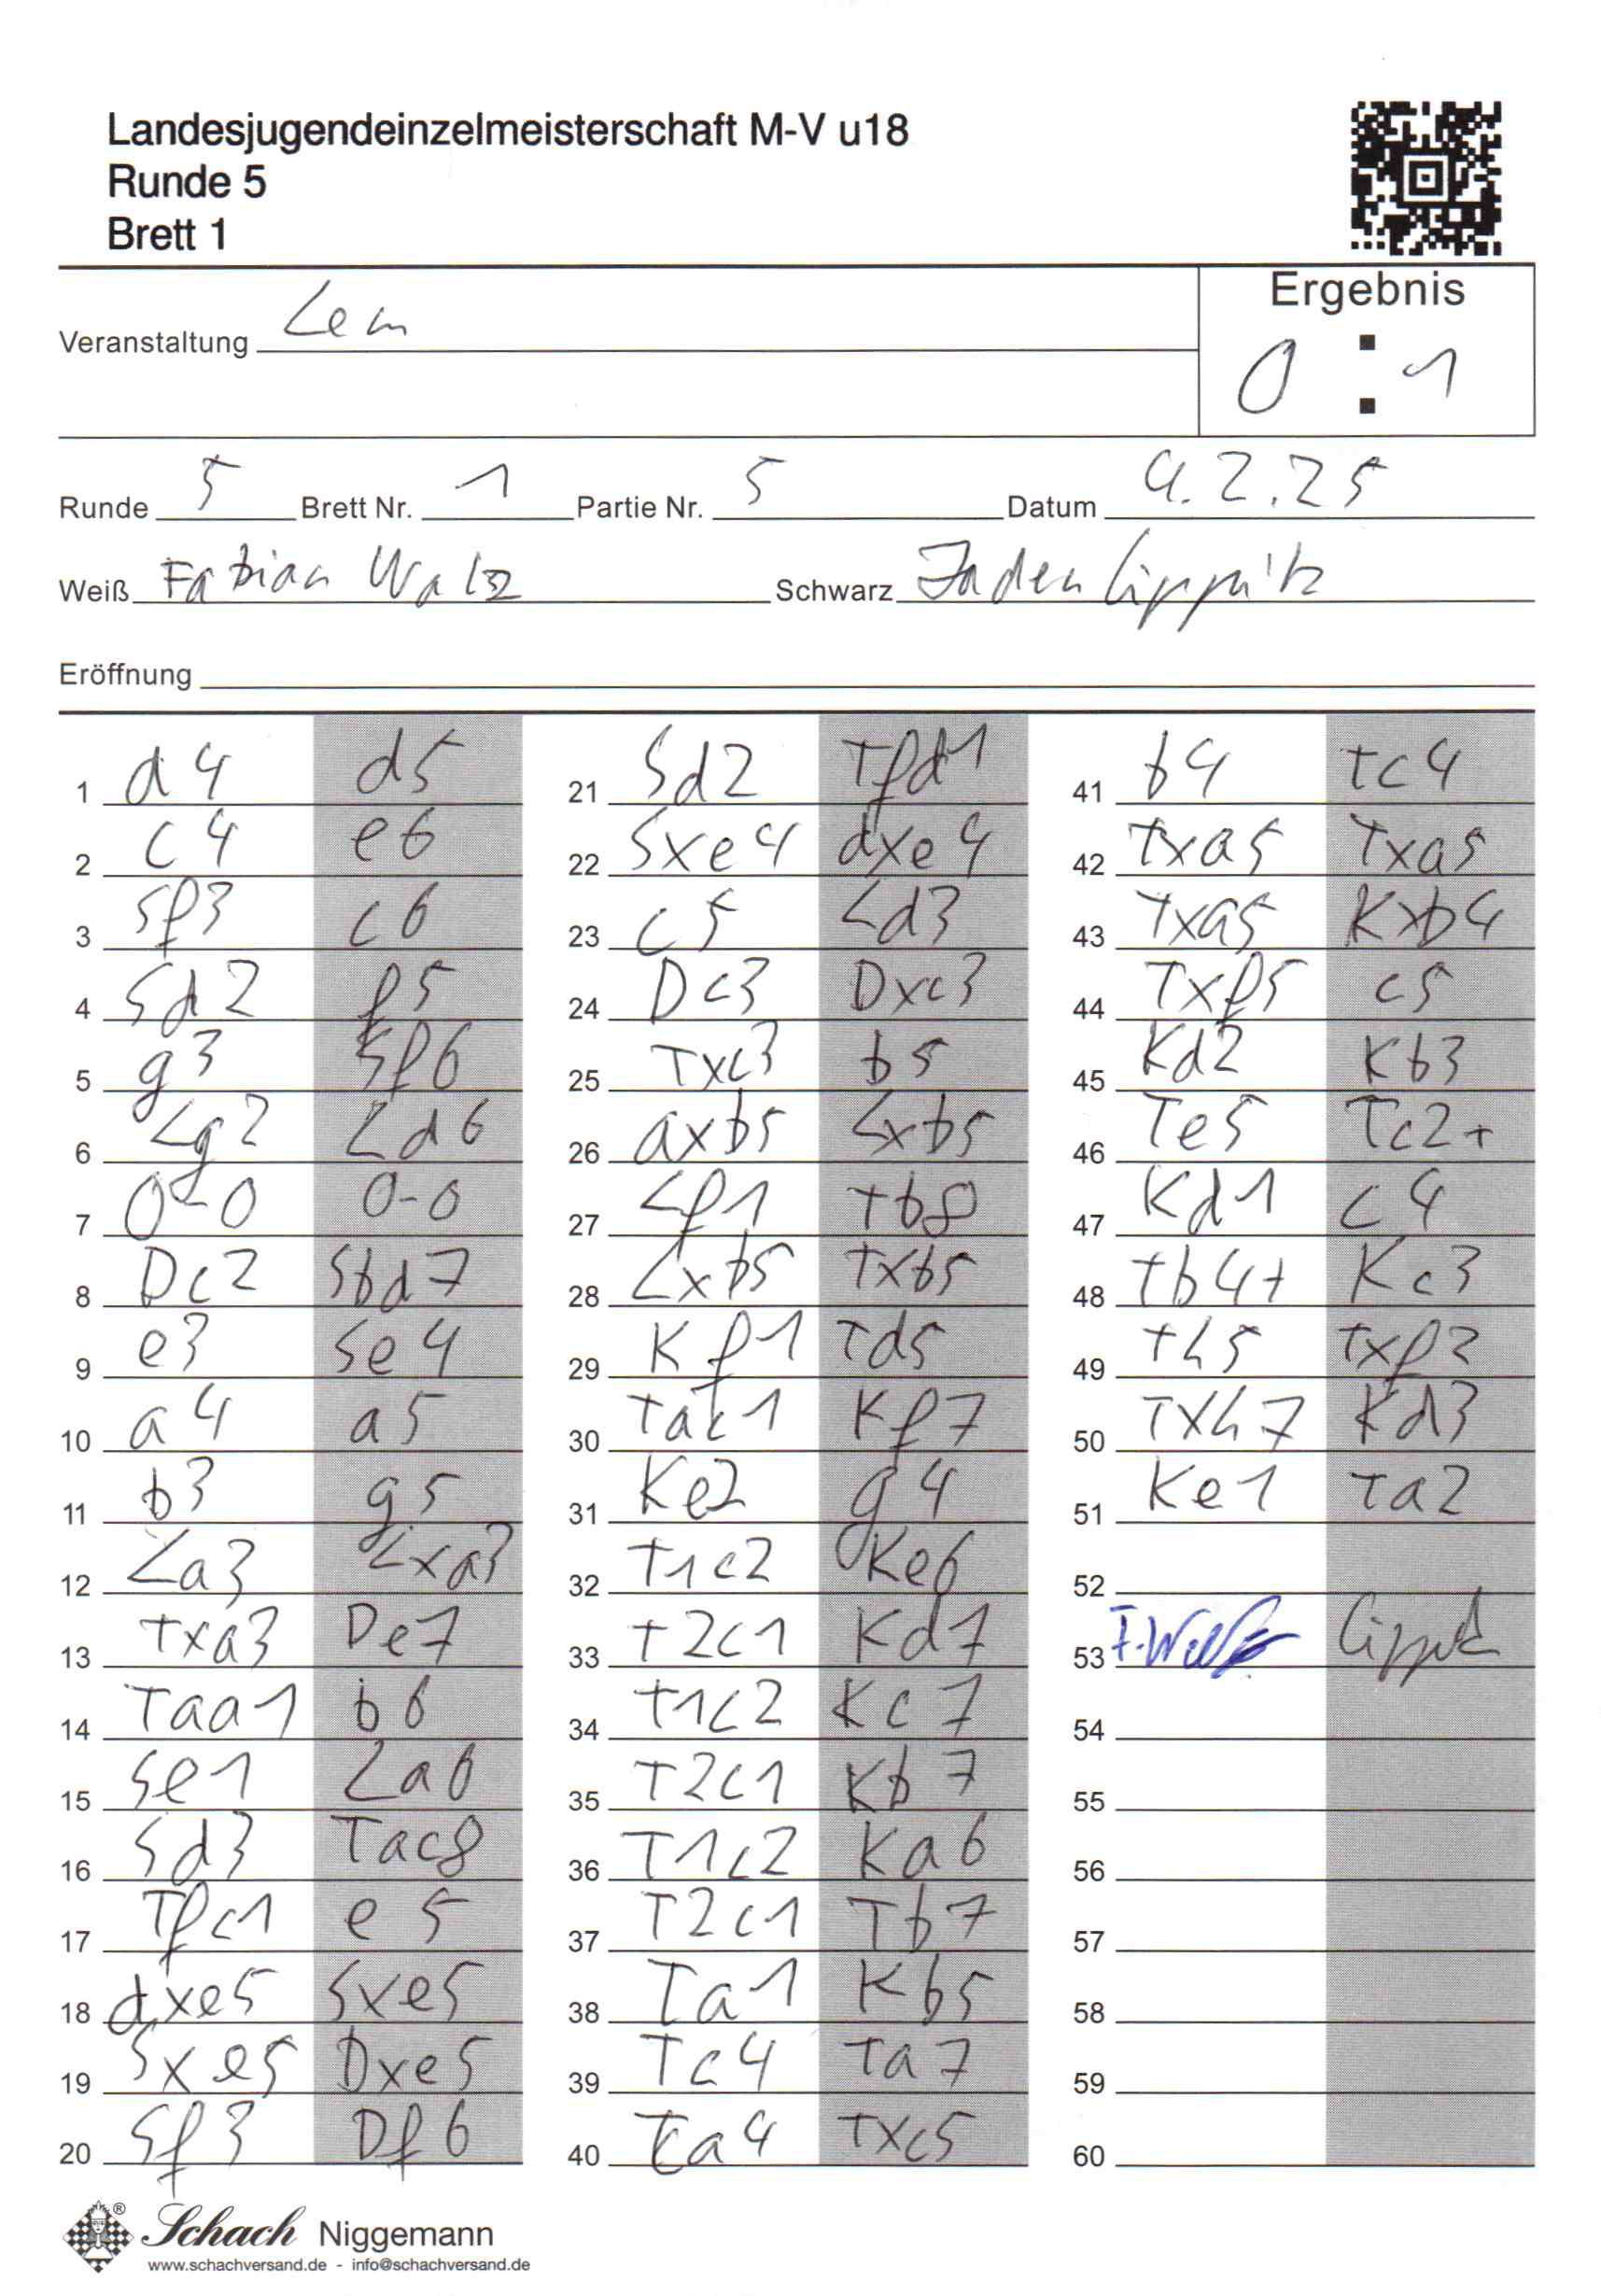 Landesjugendeinzelmeisterschaft M-V u18
Runde 5
Brett 1
Ergebnis
Veranstaltung Lem
0 : 1
Runde 5 Brett Nr. 1 Partie Nr. 5 Datum 4.2.25
Weiß Fabian Walz Schwarz Jaden Lippnitz
Eröffnung
1 d4 d5
2 c4 e6
3 Sf3 c6
4 Sd2 f5
5 g3 Sf6
6 Lg2 Ld6
7 0-0 0-0
8 Dc2 Sbd7
9 e3 Se4
10 a4 a5
11 b3 g5
12 La3 Lxa3
13 Txa3 De7
14 Taa1 b6
15 Se1 La6
16 Sd3 Tac8
17 Tfc1 e5
18 dxe5 Sxe5
19 Sxe5 Dxe5
20 Sf3 Df6
21 Sd2 Tfd1
22 Sxe4 dxe4
23 c5 Ld3
24 Dc3 Dxc3
25 Txc3 b5
26 axb5 Lxb5
27 Lf1 Tb8
28 Lxb5 Txb5
29 Kf1 Td5
30 Tac1 Kf7
31 Ke2 g4
32 T1c2 Ke6
33 T2c1 Kd7
34 T1c2 Kc7
35 T2c1 Kb7
36 T1c2 Ka6
37 T2c1 Tb7
38 Ta1 Kb5
39 Tc4 Ta7
40 Ta4 Txc5
41 b4 Tc4
42 Txa5 Txa5
43 Txa5 Kxb4
44 Txf5 c5
45 Kd2 Kb3
46 Te5 Tc2+
47 Kd1 c4
48 Tb4+ Kc3
49 Th5 Txf2
50 Txh7 Kd3
51 Ke1 Ta2
52
53 F. Walz
54
55
56
57
58
59
60
Schach Niggemann ®
www.schachversand.de - info@schachversand.de